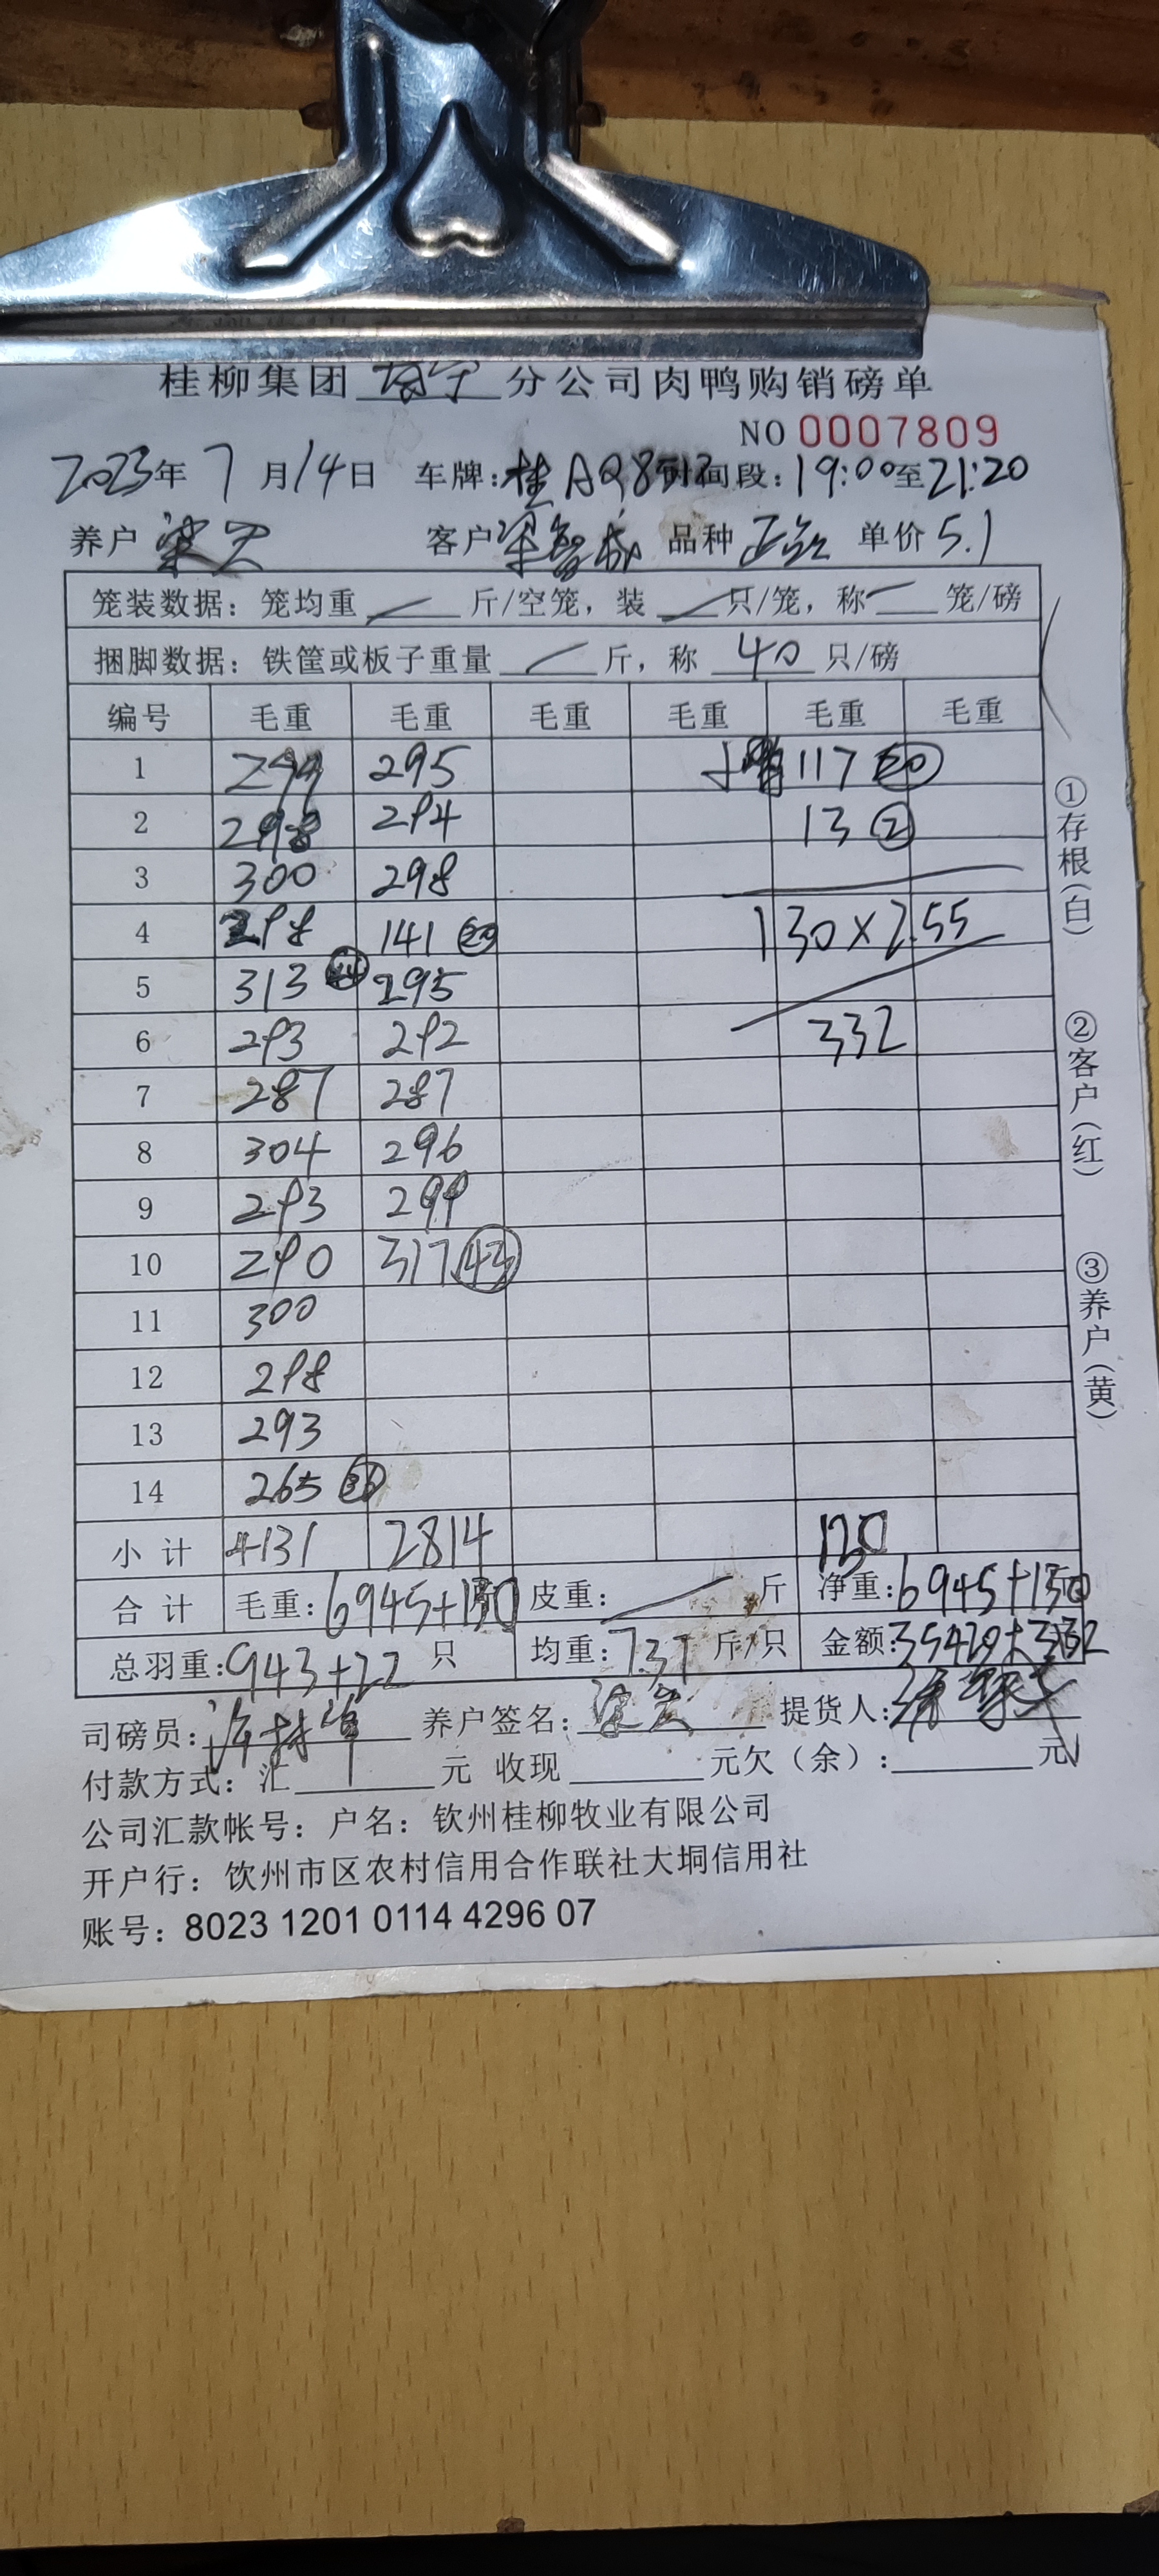 桂柳集团 南宁 分公司肉鸭购销磅单
NO 0007809
2023年 7 月 14 日 车牌: 桂AQ8 时间段: 19:00至21:20
养户 梁 客户 品种 单价 5.1
笼装数据: 笼均重 斤/空笼, 装 只/笼, 称 笼/磅
捆脚数据: 铁筐或板子重量 斤, 称 40 只/磅
编号 毛重 毛重 毛重 毛重 毛重 毛重
1 294 295 117 20
2 298 294 13 ②
3 300 298
4 298 141 20 130×2.55
5 313 295
6 293 292 332
7 287 287
8 304 296
9 293 299
10 290 317 43
11 300
12 298
13 293
14 265 36
小计 4131 2814 130
合计 毛重: 6945+130 皮重: 斤 净重: 6945+130
总羽重: 943+22 只 均重: 7.37 斤/只 金额: 35420+332
司磅员: 养户签名: 提货人:
付款方式: 汇 元 收现 元欠(余): 元
公司汇款帐号: 户名: 钦州桂柳牧业有限公司
开户行: 钦州市区农村信用合作联社大垌信用社
账号: 8023 1201 0114 4296 07
①存根(白)
②客户(红)
③养户(黄)